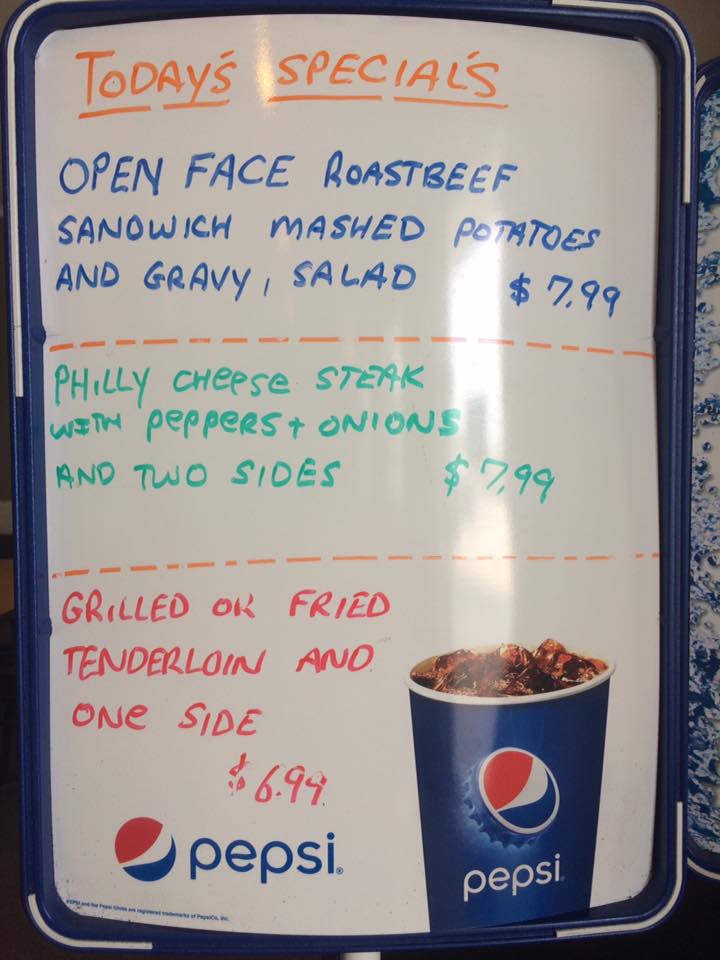 TODAY'S SPECIAL'S
OPEN FACE ROASTBEEF
SANDWICH MASHED POTATOES
AND GRAVY, SALAD $7.99
PHILLY CHEESE STEAK
WITH PEPPERS + ONIONS
AND TWO SIDES $7.99
GRILLED OR FRIED
TENDERLOIN AND
ONE SIDE
$6.99
pepsi.
pepsi.
PEPSI and the Pepsi Globe are registered trademarks of PepsiCo, Inc.